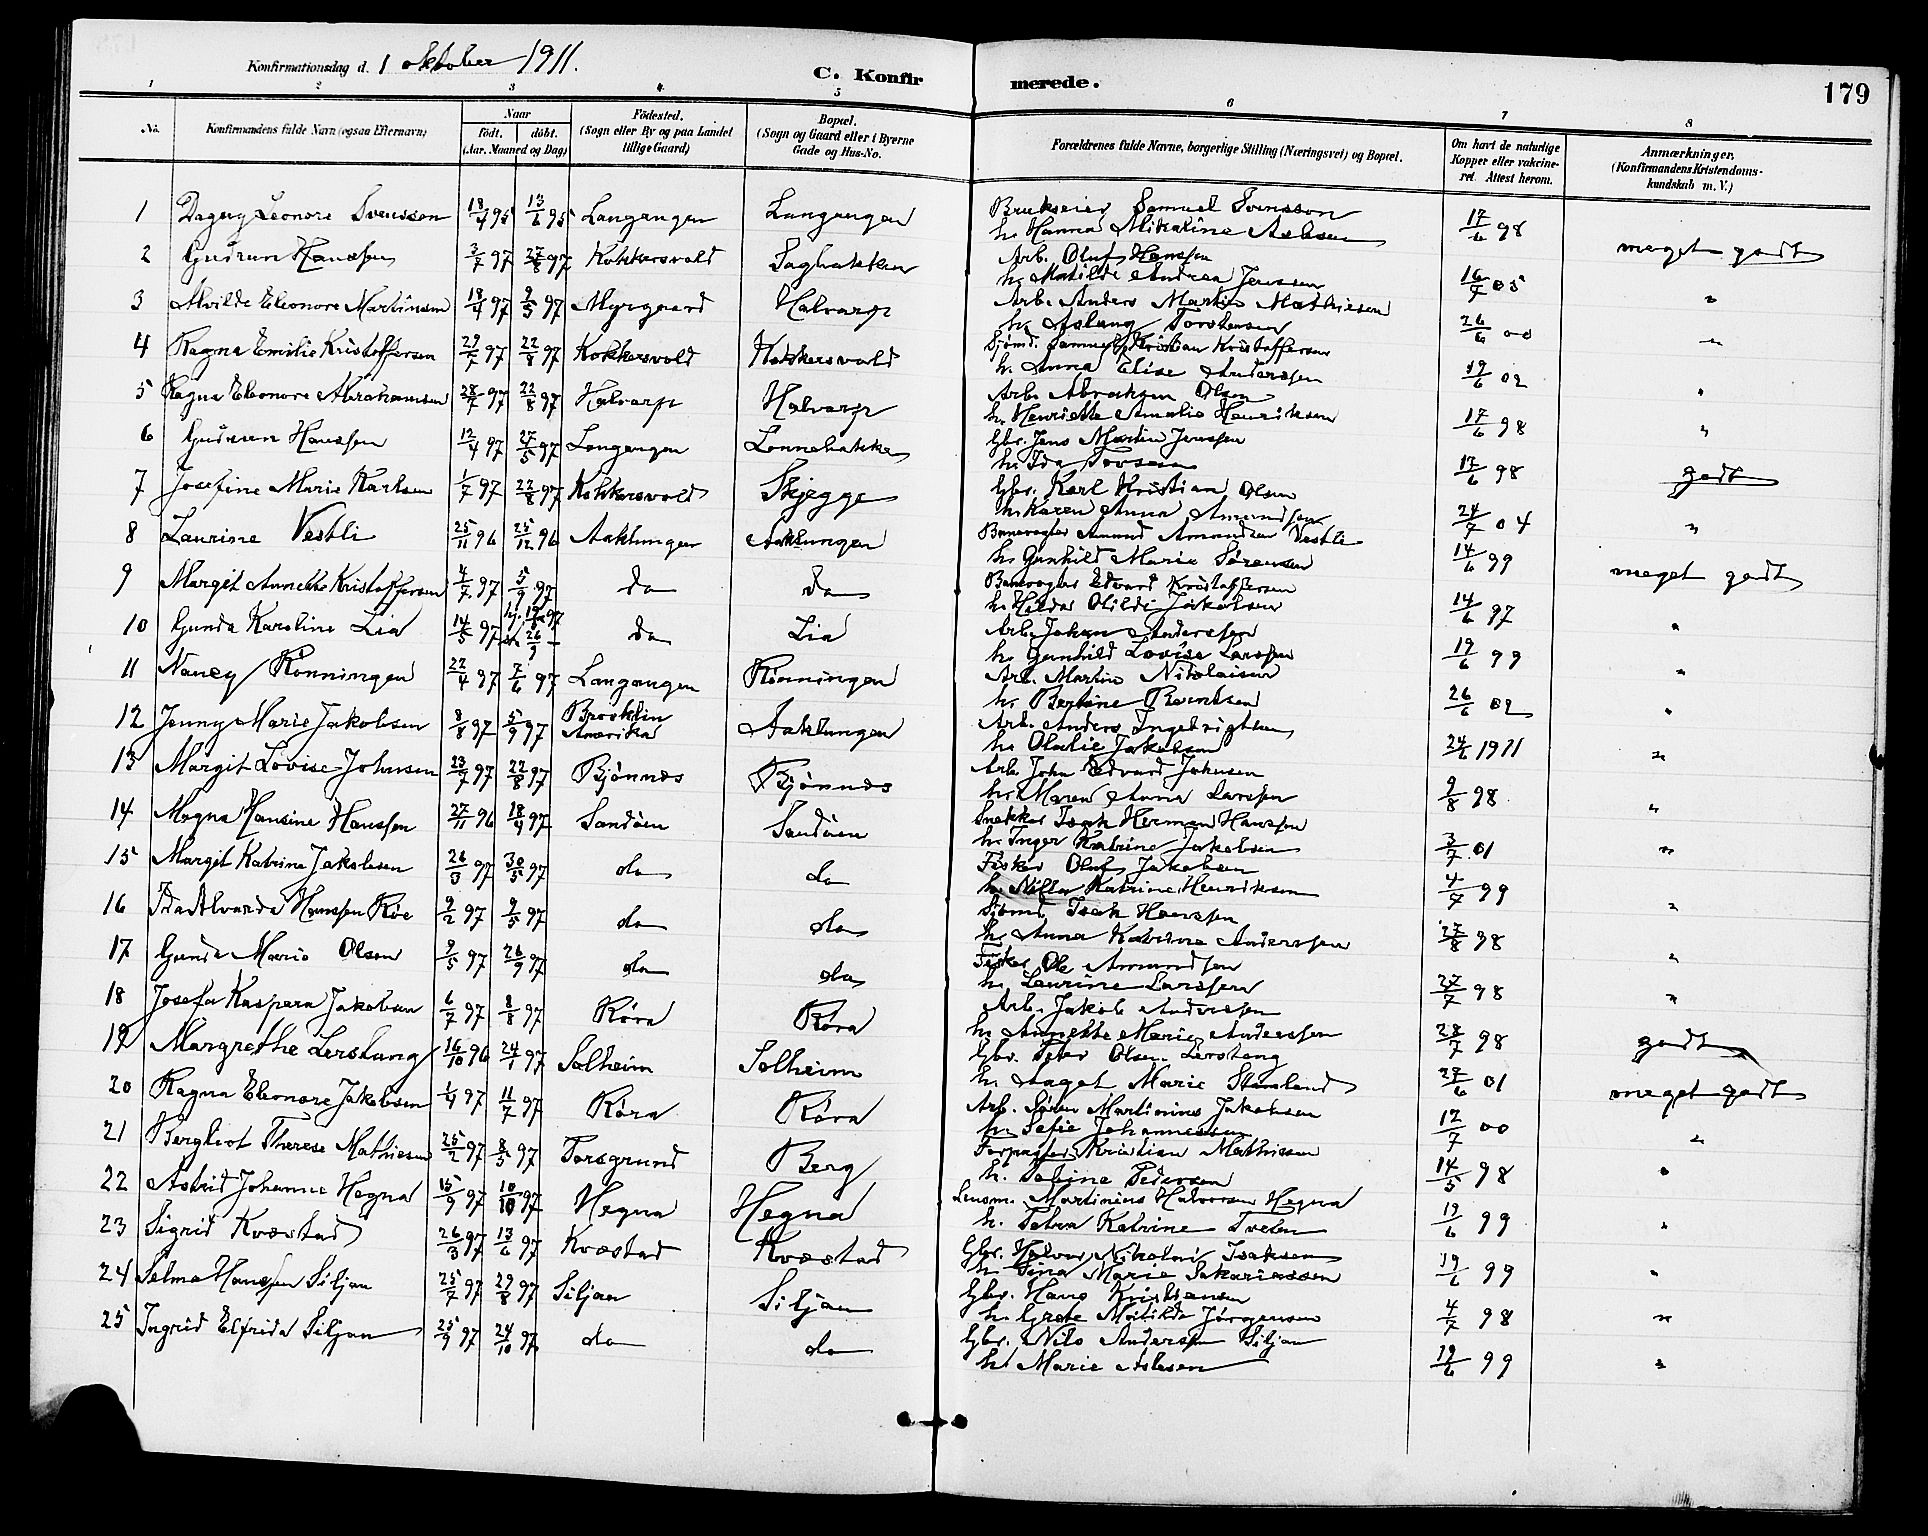 Konfirmationsdag d. 1 oktober 1911.
C. Konfirmerede.
179
1 2 3 4 5 6 7 8
No.
Konfirmandens fulde Navn (ogsaa Efternavn)
Naar
født. døbt.
(Aar. Maaned og Dag)
Fødested.
(Sogn eller By og paa Landet
tillige Gaard)
Bopæl.
(Sogn og Gaard eller i Byerne
Gade og Hus-No.
Forældrenes fulde Navne, borgerlige Stilling (Næringsvei) og Bopæl.
Om havt de naturlige
Kopper eller vakcine-
ret. Attest herom.
Anmærkninger.
(Konfirmandens Kristendoms-
kundskab m. V.)
1 Dagny Leonore Svensson 18/4 95 13/6 95 Langangen Langangen Brukseier Samuel Svensson
h. Hanna Mikaline Aslesen 17/6 98 meget godt
2 Gudrun Hanssen 3/7 97 22/8 97 Kokkersvold Sagbakken Arb. Oluf Hanssen
h. Matilde Andrea Jenssen 16/7 05 "
3 Alvilde Eleonore Martinsen 18/4 97 9/5 97 Myrgaard Halvarp Arb. Anders Martin Mathiesen
h. Aslaug Torstensen 26/6 00 "
4 Ragna Emilie Kristoffersen 29/5 97 22/8 97 Kokkersvold Kokkersvold Sjømd. Samuel Kristian Kristoffersen
h. Anna Elise Anderssen 19/6 02 "
5 Ragna Eleonore Abrahamsen 28/7 97 22/8 97 Halvarp Halvarp Arb. Abraham Olsen
h. Henriette Amalie Henriksen 17/6 98 "
6 Gudrun Hanssen 12/4 97 27/5 97 Langangen Lonnebakke Gbr. Jens Martin Jenssen
h. Ida Torsen 17/6 98 godt
7 Josefine Marie Karlsen 1/7 97 22/8 97 Kokkersvold Skjegge Gbr. Karl Kristian Olsen
h. Karen Anna Amundsen 24/7 04 "
8 Laurine Vestli 25/11 96 25/12 96 Aaklungen Aaklungen Banevogter Amund Amundsen Vestli
h. Gunhild Marie Sørensen 14/6 99 meget godt
9 Margit Annette Kristoffersen 4/7 97 5/9 97 do do Banevogter Edvard Kristoffersen
h. Hilda Otilde Jakobsen 14/6 97 "
10 Gunda Karoline Lia 14/5 97 26/9 do Lia Arb. Johan Anderssen
h. Gunhild Lovise Larssen 19/6 99 "
11 Nancy Rønningen 22/4 97 7/6 97 Langangen Rønningen Arb. Martin Nikolaisen
h. Bertine Berntsen 26/6 02 "
12 Jenny Marie Jakobsen 8/8 97 5/9 97 Brooklin
Amerika Aaklungen Arb. Anders Ingebrigtsen
h. Olalie Jakobsen 24/6 1911 "
13 Margit Lovise Johnsen 23/7 97 22/8 97 Bjønnes Bjønnes Arb. John Edvard Johnsen
h. Maren Anna Larssen 9/8 98 "
14 Magna Hansine Hanssen 27/11 96 18/4 97 Sandøen Sandøen Snekker Isak Herman Hanssen
h. Inger Katrine Jakobsen 3/7 01 "
15 Margit Katrine Jakobsen 26/3 97 30/5 97 do do Fisker Oluf Jakobsen
h. Katrine Henriksen 4/7 99 "
16 Ida Alvarda Hanssen Røe 9/2 97 9/5 97 do do Sjømd. Isak Hanssen
h. Anna Katrine Anderssen 27/8 98 "
17 Gunda Marie Olsen 9/5 97 26/9 97 do do Fisker Ole Amundsen
h. Laurine Larssen 27/7 98 "
18 Josefa Kaspara Jakobsen 6/7 97 8/8 97 Røra Røra Arb. Jakob Anderssen
h. Annette Marie Anderssen 28/7 98 godt
19 Margrethe Lerstang 16/10 96 24/1 97 Solheim Solheim Gbr. Peter Olsen Lerstang
h. Aaget Marie Stensland 27/6 01 meget godt
20 Ragna Eleonore Jakobsen 1/4 97 11/7 97 Røra Røra Arb. Søren Martinius Jakobsen
h. Sofie Johannessen 12/7 00 "
21 Bergliot Therese Mathiesen 25/2 97 8/5 97 Porsgrund Berg Forpagter Kristian Mathisen
h. Tobine Pedersen 14/5 98 "
22 Astrid Johanne Hegna 15/9 97 10/10 97 Hegna Hegna Lensm. Martinius Halvorsen Hegna
h. Petra Katrine Tveten 19/6 99 "
23 Sigrid Kvæstad 26/3 97 13/6 97 Kvæstad Kvæstad Gbr. Halvor Nikolai Isaksen
h. Tina Marie Sakariassen 19/6 99 "
24 Selma Hanssen Siljan 25/7 97 29/8 97 Siljan Siljan Gbr. Hans Kristensen
h. Grete Matilde Jørgensen 4/7 98 "
25 Ingrid Elfrida Siljan 25/9 97 24/10 97 do do Gbr. Nils Andersen Siljan
h. Marie Aslesen 19/6 99 "